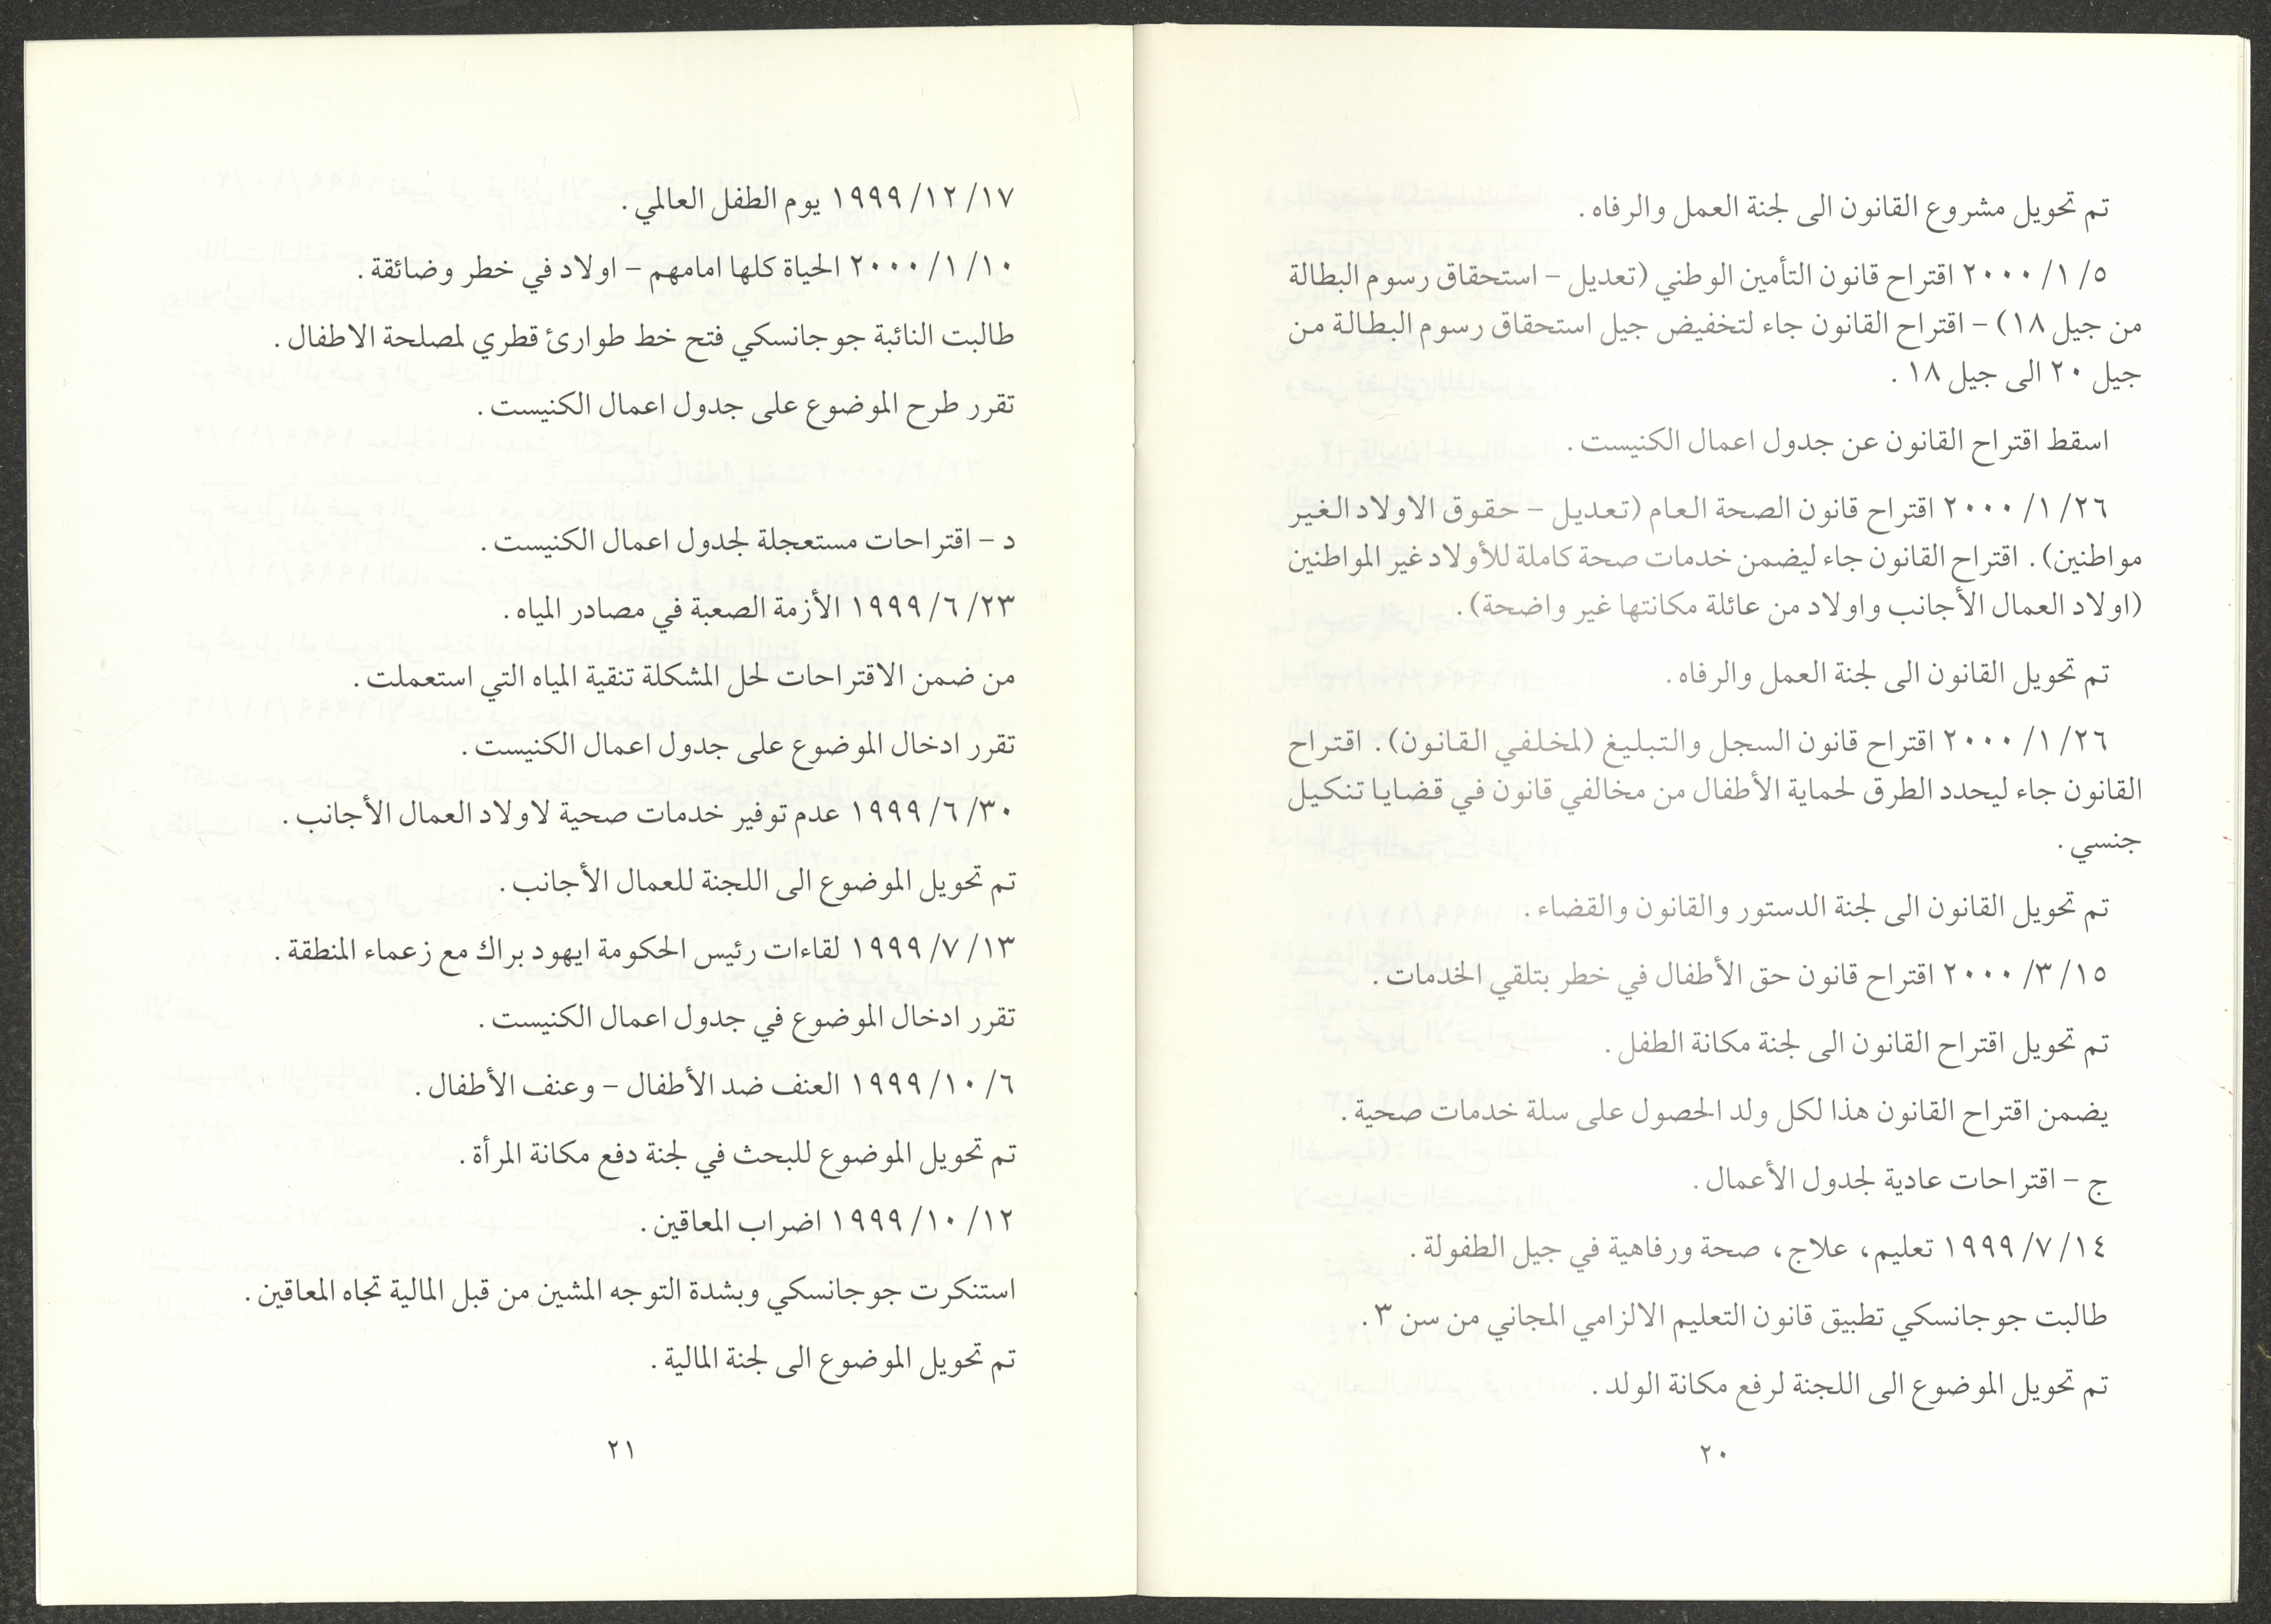 تم تحويل مشروع القانون الى لجنة العمل والرفاه.
٢٠٠٠/١/٥ اقتراح قانون التأمين الوطني (تعديل – استحقاق رسوم البطالة
من جيل ١٨) – اقتراح القانون جاء لتخفيض جيل استحقاق رسوم البطالة من
جيل ٢٠ الى جيل ١٨.
اسقط اقتراح القانون عن جدول اعمال الكنيست.
٢٠٠٠/١/٢٦ اقتراح قانون الصحة العام (تعديل – حقوق الاولاد الغير
مواطنين). اقتراح القانون جاء ليضمن خدمات صحة كاملة للأولاد غير المواطنين
(اولاد العمال الأجانب واولاد من عائلة مكانتها غير واضحة).
تم تحويل القانون الى لجنة العمل والرفاه.
٢٠٠٠/١/٢٦ اقتراح قانون السجل والتبليغ (لمخلفي القانون). اقتراح
القانون جاء ليحدد الطرق لحماية الأطفال من مخالفي قانون في قضايا تنكيل
جنسي.
تم تحويل القانون الى لجنة الدستور والقانون والقضاء.
٢٠٠٠/٣/١٥ اقتراح قانون حق الأطفال في خطر بتلقي الخدمات.
تم تحويل اقتراح القانون الى لجنة مكانة الطفل.
يضمن اقتراح القانون هذا لكل ولد الحصول على سلة خدمات صحية.
ج – اقتراحات عادية لجدول الأعمال.
١٩٩٩/٧/١٤ تعليم، علاج، صحة ورفاهية في جيل الطفولة.
طالبت جوجانسكي تطبيق قانون التعليم الالزامي المجاني من سن ٣.
تم تحويل الموضوع الى اللجنة لرفع مكانة الولد.
٢٠
١٩٩٩/١٢/١٧ يوم الطفل العالمي.
٢٠٠٠/١/١٠ الحياة كلها امامهم – اولاد في خطر وضائقة.
طالبت النائبة جوجانسكي فتح خط طوارئ قطري لمصلحة الاطفال.
تقرر طرح الموضوع على جدول اعمال الكنيست.
د – اقتراحات مستعجلة لجدول اعمال الكنيست.
١٩٩٩/٦/٢٣ الأزمة الصعبة في مصادر المياه.
من ضمن الاقتراحات لحل المشكلة تنقية المياه التي استعملت.
تقرر ادخال الموضوع على جدول اعمال الكنيست.
١٩٩٩/٦/٣٠ عدم توفير خدمات صحية لاولاد العمال الأجانب.
تم تحويل الموضوع الى اللجنة للعمال الأجانب.
١٩٩٩/٧/١٣ لقاءات رئيس الحكومة ايهود براك مع زعماء المنطقة.
تقرر ادخال الموضوع في جدول اعمال الكنيست.
١٩٩٩/١٠/٦ العنف ضد الأطفال – وعنف الأطفال.
تم تحويل الموضوع للبحث في لجنة دفع مكانة المرأة.
١٩٩٩/١٠/١٢ اضراب المعاقين.
استنكرت جوجانسكي وبشدة التوجه المشين من قبل المالية تجاه المعاقين.
تم تحويل الموضوع الى لجنة المالية.
٢١